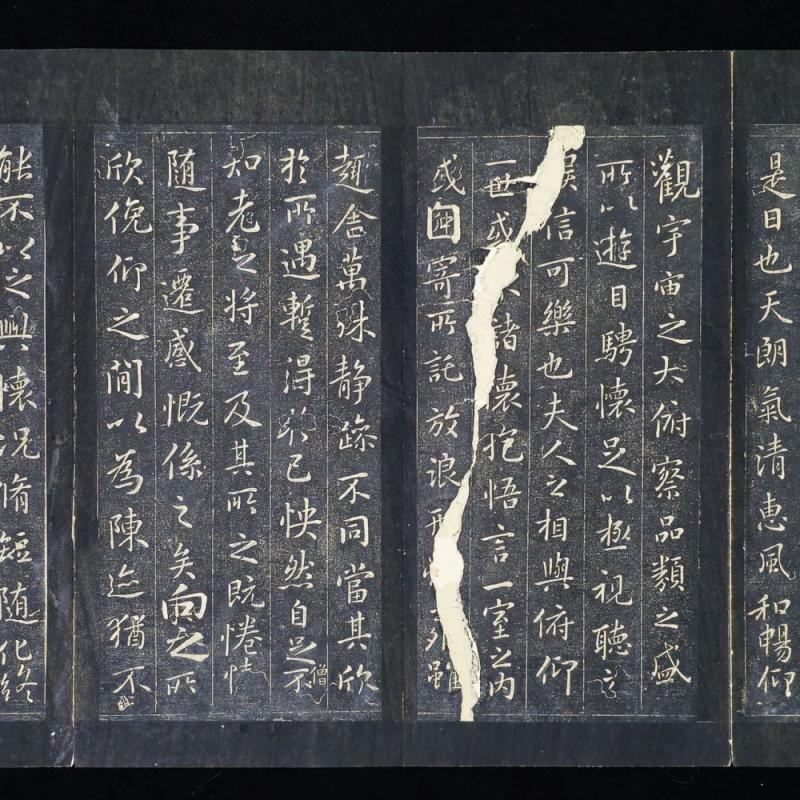 是日也天朗氣清惠風和暢仰
觀宇宙之大俯察品類之盛
所以遊目騁懷足以極視聽之
信可樂也夫人之相與俯仰
一世或諸懷抱悟言一室之内
或因寄所託放浪形外雖
趣舍萬殊静躁不同當其欣
僧
於所遇暫得於己怏然自足不
知老之將至及其所之既惓情
随事遷感慨係之矣向之所
欣俛仰之閒以為陳迹猶不
能不以之興懷況脩短随化終